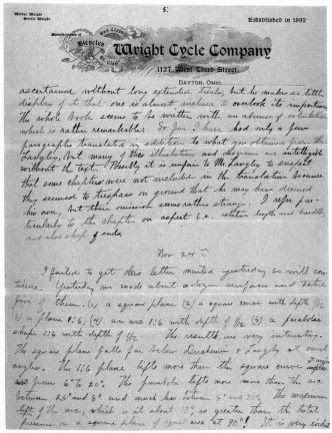 5.
Wilbur Wright
Orville Wright
Established in 1892
Bicycles
Wright Cycle Company
1127 West Third Street.
DAYTON, OHIO.
ascertained without long extended trials, but he makes so little
display of it that one is almost inclined to overlook its importance
The whole book seems to be written with an absence of
which is rather remarkable. So far I have had only a few
paragraphs translated in addition to what you obtained from Mr.
Langley, but many of the illustrations and diagrams are intelligible
without the text. Possibly it is unfair to Mr. Langley to suggest
that some chapters were not included in the translation because
they seemed to trespass on ground that he may have deemed
his own, but their omission seems rather strange. I refer par-
ticularly to the chapter on aspect i.e. relative length and breadth
and also shape of ends.
Nov 24th
I failed to get this letter mailed yesterday so will con-
tinue. Yesterday we made about a dozen surfaces and tested
four of them. (1) a square plane (2) a square curve with depth 1/12
(3) a plane 1:6, (4) an arc 1:6 with depth of 1/12 (5) a parabolic
shape 1:6 with depth of 1/12. The results are very interesting.
The square plane falls far below Duchemin & Langley at small
angles. The 1:6 plane lifts more than the square curve
from 6° to 20°. The parabola lifts more than the arc
between and 8° and much less between The maximum
lift of the arc, which is at about is greater than the total
pressure on a square plane of equal area at 90°! It is very